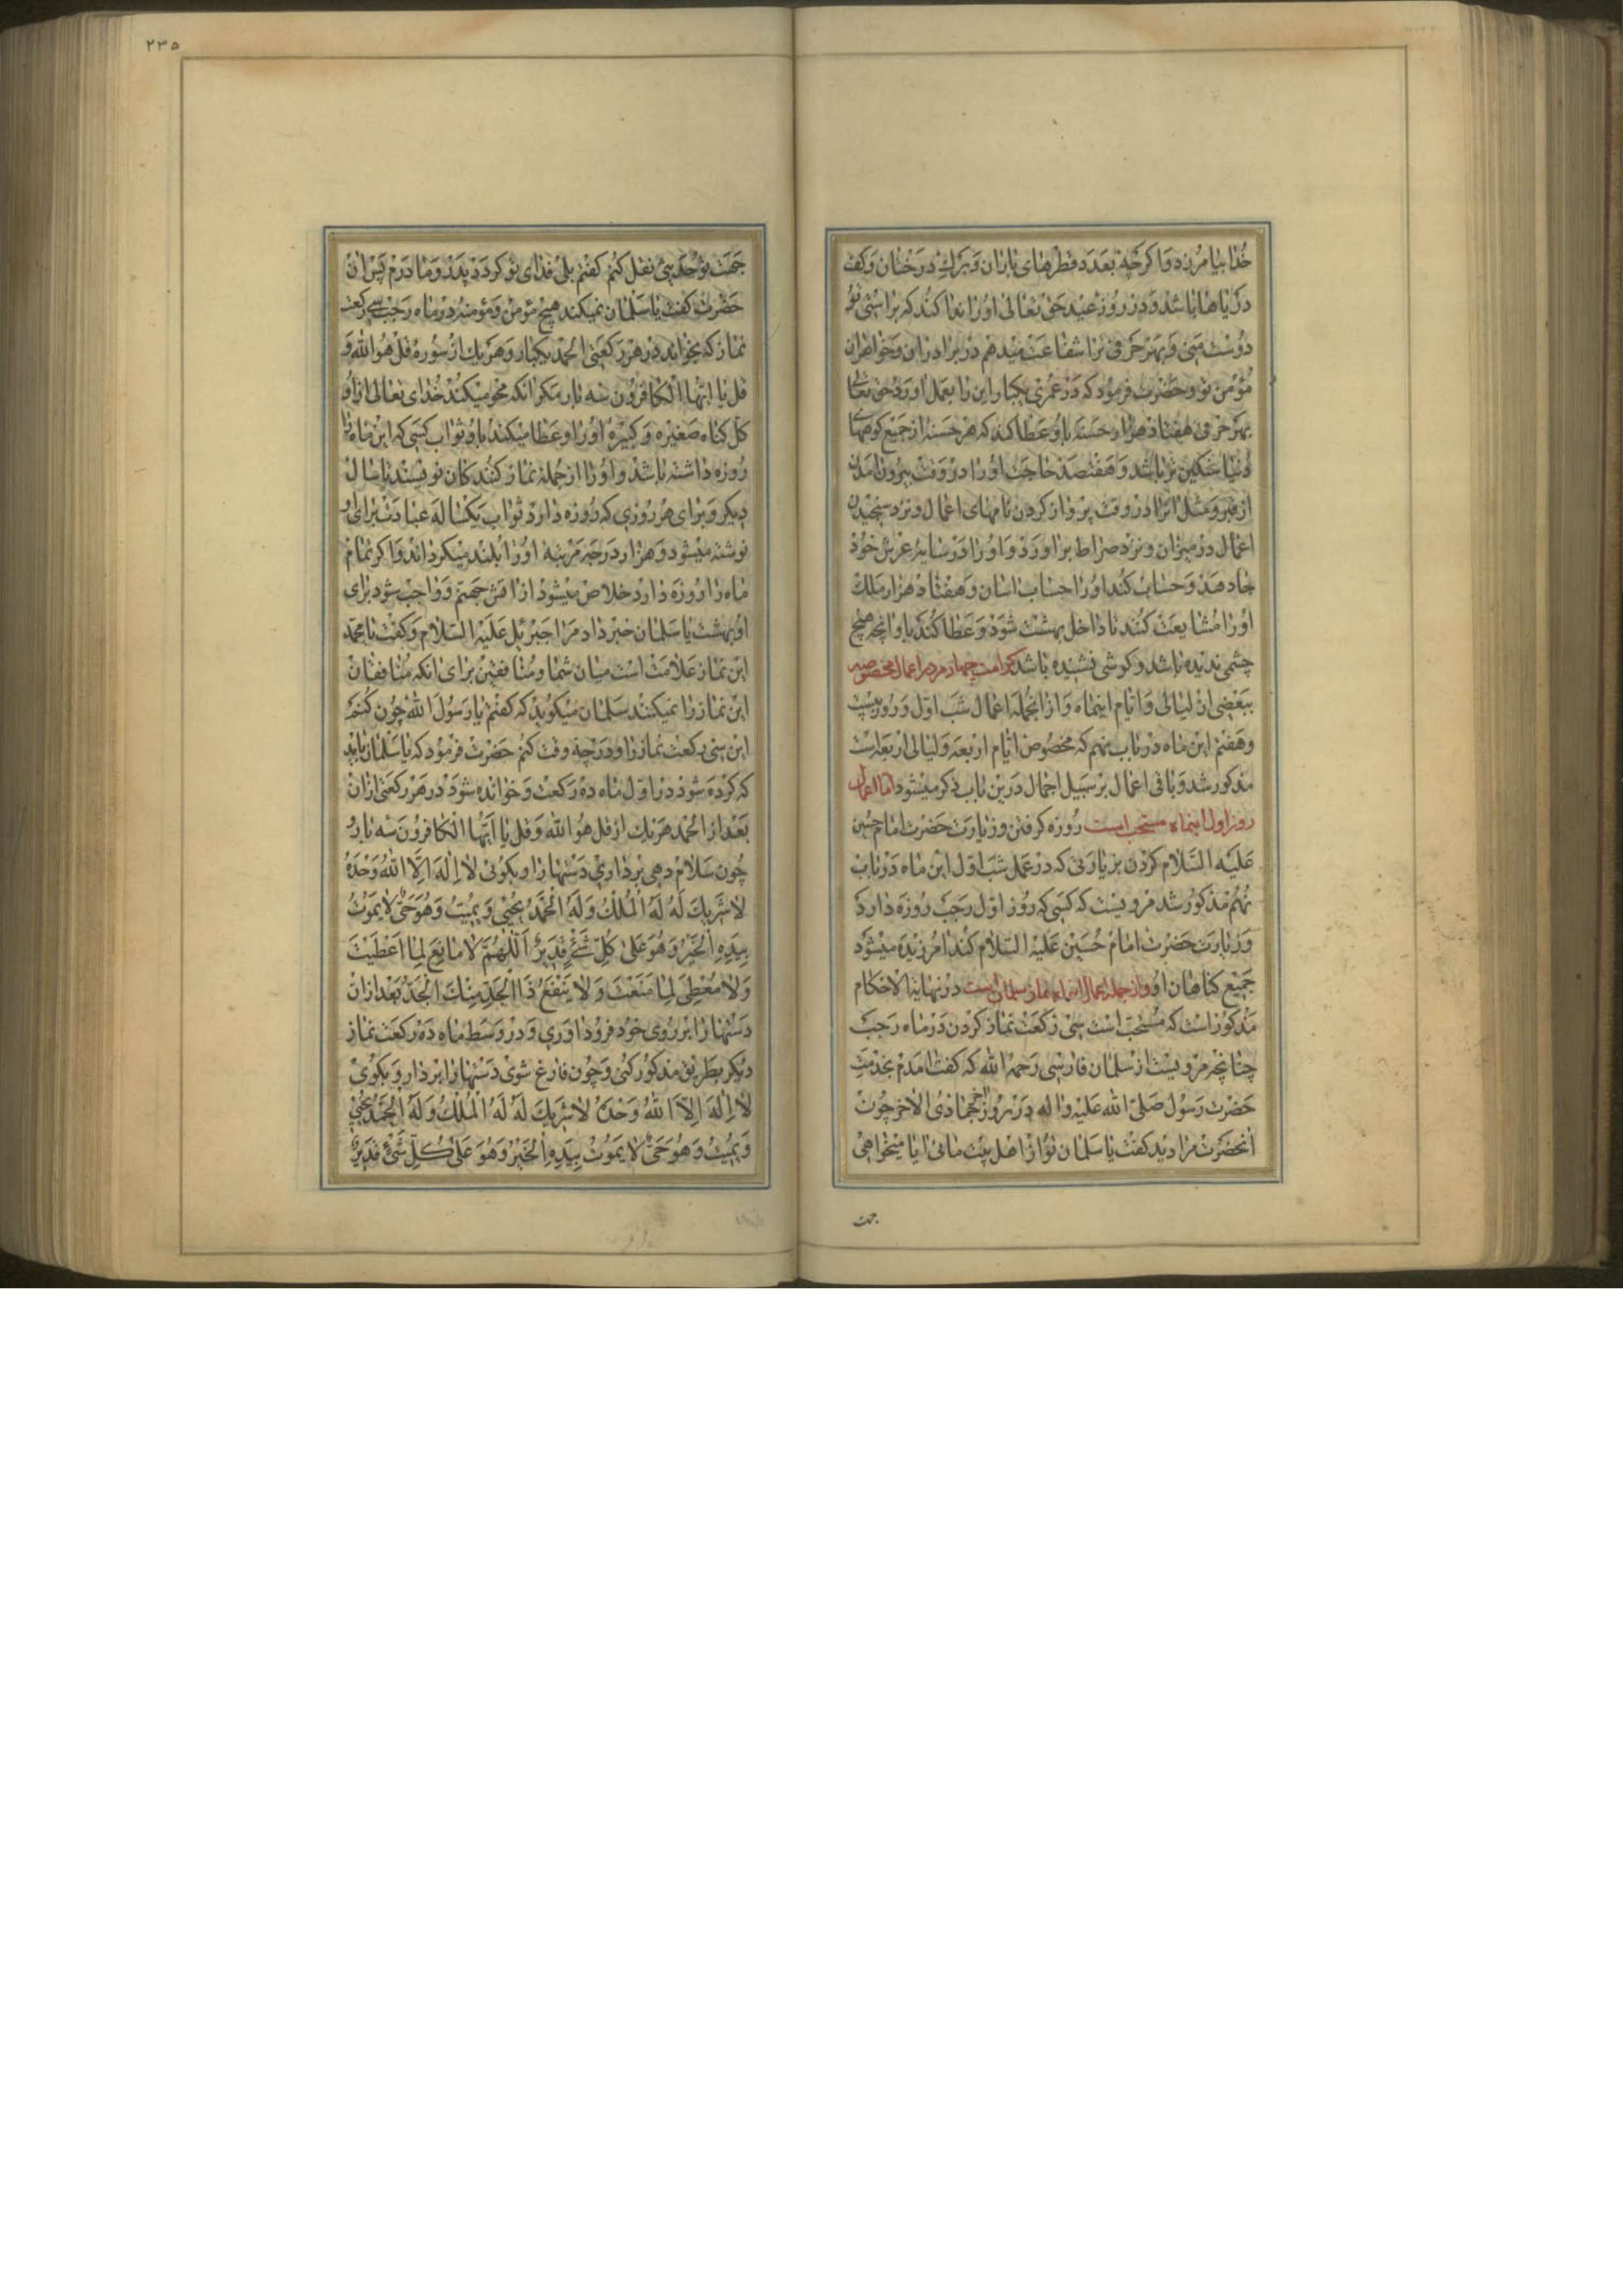 خدا بیامرزد و اگر چه بعدد قطرهای باران و برك درختان و كف
دریاها باشد و در روز عید حق تعالی او را ندا كند كه براستی تو
دوست منی و بهر حرفی ترا شفاعت میدهم در برادران و خواهران
مؤمن تو و حضرت فرمود كه در عمری یكبار این را بعمل آورد حق تعالی
بهر حرفی هفتاد هزار حسنه باو عطا كند كه هر حسنه از جمیع كوههای
دنیا سنكین تر باشد و هفتصد حاجت او را در وقت بیرون آمدن
از قبر و مثل آنرا در وقت پرواز كردن نامهای اعمال و نزد سنجیدن
اعمال در میزان و نزد صراط براورد و او را در سایه عرش خود
جا دهد و حساب كند او را حساب آسان و هفتاد هزار ملك
او را مشایعت كنند تا داخل بهشت شود و عطا كند باو آنچه هیچ
چشمی ندیده باشد و كوشی نشنیده باشد كرامت چهاردهم در اعمال مخصوصه
ببعضی از لیالی و ایام اینماه و از انجمله اعمال شب اول و روز بیست
و هفتم این ماه در باب نهم كه مخصوص ایام اربعه و لیالی اربعه است
مذكور شد و باقی اعمال بر سبیل اجمال درین باب ذكر میشود اما اعمال
روز اول اینماه مستحب است روزه كرفتن و زیارت حضرت امام حسین
علیه السلام كردن بزیارتی كه در عمل شب اول این ماه در باب
نهم مذكور شد مرویست كه كسی كه روز اول رجب روزه دارد
و زیارت حضرت امام حسین علیه السلام كند آمرزیده میشود
جمیع كناهان او و از جمله اعمال اینماه نماز سلمان است در نهایة الاحكام
مذكور است كه مستحب است سی ركعت نماز كردن در ماه رجب
چنانچه مرویست از سلمان فارسی رحمه الله كه كفت آمدم بخدمت
حضرت رسول صلی الله علیه و اله در روز آخر جمادی الاخر چون
آنحضرت مرا دید كفت یا سلمان تو از اهل بیت مائی آیا میخواهی
جهت
٢٣٥
جهت تو حدیثی نقل كنم كفتم بلی فدای تو كردد پدر و مادرم پس آن
حضرت كفت یا سلمان نمیكند هیچ مؤمن و مؤمنه در ماه رجب سی ركعت
نماز كه بخواند در هر ركعتی الحمد یكبار و هر یك از سوره قل هو الله و
قل یا ایها الكافرون سه بار مكر آنكه محو میكند خدای تعالی از او
كل كناه صغیره و كبیره او را و عطا میكند باو ثواب كسی كه این ماه را
روزه داشته باشد و او را از جمله نماز كنندكان نویسند تا سال
دیكر و برای هر روزی كه روزه دارد ثواب یكساله عبادت برای او
نوشته میشود و هزار درجه مرتبه او را بلند میكرداند و اكر تمام
ماه را روزه دارد خلاص میشود از آتش جهنم و واجب شود برای
او بهشت یا سلمان خبر داد مرا جبرئیل علیه السلام و كفت یا محمد
این نماز علامت است میان شما و منافقین برای آنكه منافقان
این نماز را نمیكنند سلمان میكوید كه كفتم یا رسول الله چون كنم
این سی ركعت نماز را و در چه وقت كنم حضرت فرمود كه یا سلمان باید
كه كرده شود در اول ماه ده ركعت و خوانده شود در هر ركعتی از آن
بعد از الحمد هر یك از قل هو الله و قل یا ایها الكافرون سه بار و
چون سلام دهی برداری دستها را و بكوئی لا اله الا الله وحده
لا شریك له له الملك و له الحمد یحیی و یمیت و هو حی لا یموت
بیده الخیر و هو علی كل شئ قدیر اللهم لا مانع لما اعطیت
و لا معطی لما منعت و لا ینفع ذا الجد منك الجد بعد از آن
دستها را بر روی خود فرود آوری و در وسط ماه ده ركعت نماز
دیكر بطریق مذكور كنی و چون فارغ شوی دستها را بردار و بكوی
لا اله الا الله وحده لا شریك له له الملك و له الحمد یحیی
و یمیت و هو حی لا یموت بیده الخیر و هو علی كل شئ قدیر